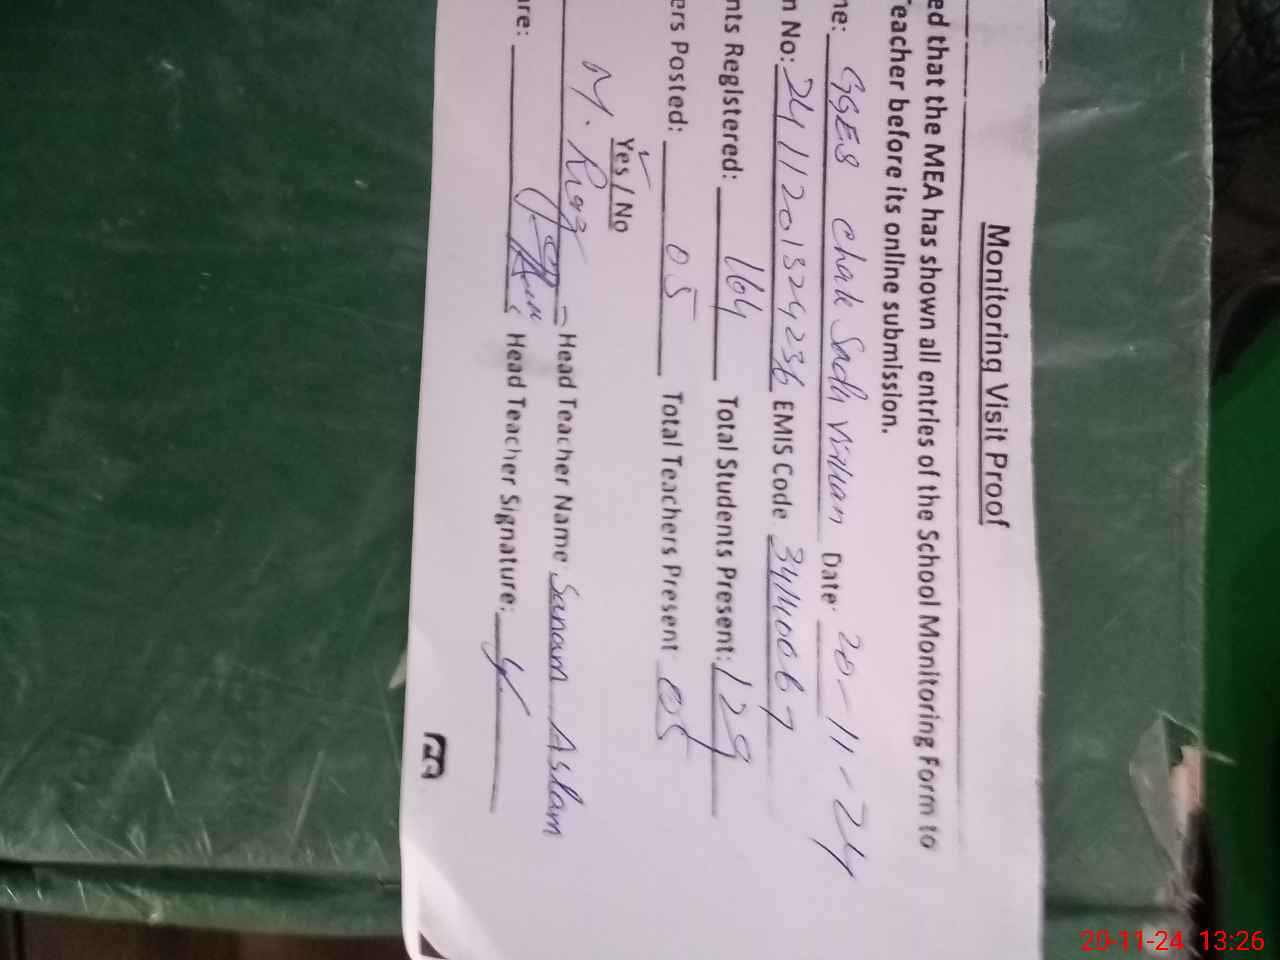 Monitoring Visit Proof
ed that the MEA has shown all entries of the School Monitoring Form to
eacher before its online submission.
me: GGES Chak Sadh Date: 20-11-24
n No: 24111201324236 EMIS Code 34110067
nts Registered: 164 Total Students Present: 129
ers Posted: 05 Total Teachers Present 05
Yes / No
M. Riaz Head Teacher Name Sanam Aslam
ure: Head Teacher Signature:
20-11-24 13:26